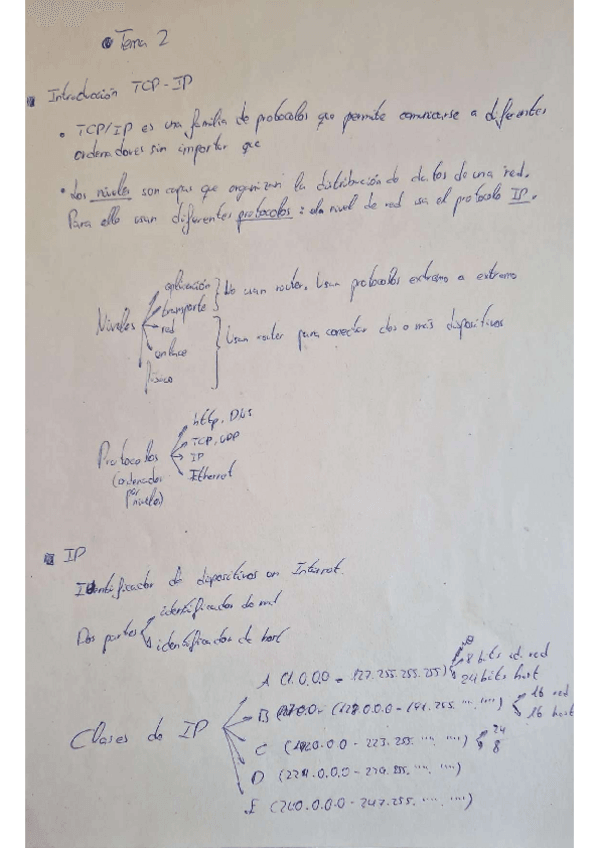 Tema 2
Introducción TCP-IP
• TCP/IP es una familia de protocolos que permite comunicarse a diferentes
ordenadores sin importar que
• Los niveles son capas que organizan la distribución de datos de una red.
Para ello usan diferentes protocolos: nivel de red usa el protocolo IP.
Niveles
aplicación
transporte
red
enlace
físico
No usan router. Usan protocolos extremo a extremo
Usan router para conectar dos o más dispositivos
Protocolos
(ordenados
por
niveles)
http, DNS
TCP, UDP
IP
Ethernet
IP
Identificador de dispositivos en Internet.
Dos partes
identificador de red
identificador de host
Clases de IP
A (1.0.0.0 - 127.255.255.255)
8 bits id. red
24 bits host
B (128.0.0.0 - 191.255. "" . "")
16 red
16 host
C (192.0.0.0 - 223.255. "" . "")
24
8
D (224.0.0.0 - 239.255. "" . "")
E (240.0.0.0 - 247.255. "" . "")